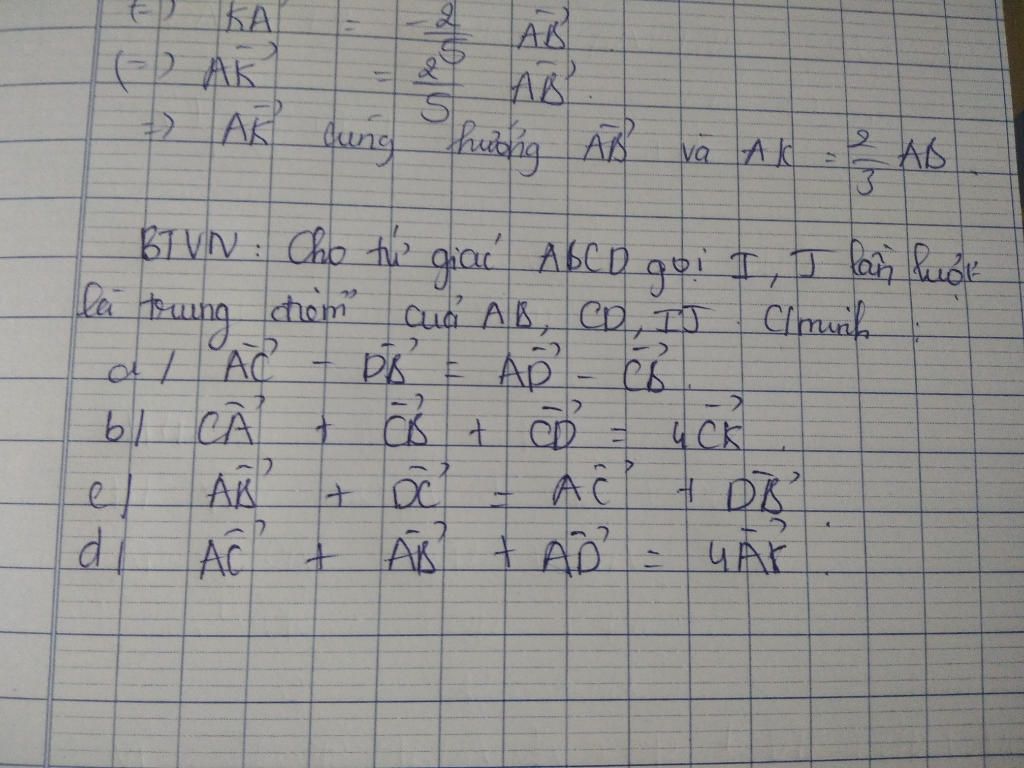 (=) KA = -2/5 AB
(=) AK = 2/5 AB.
=> AK cùng hướng AB và AK = 2/3 AB.
BTVN: Cho tứ giác ABCD gọi I, J lần lượt
là trung điểm của AB, CD, IJ. C/minh:
a/ AC - DB = AD - CB.
b/ CA + CB + CD = 4CK.
c/ AB + DC = AC + DB.
d/ AC + AB + AD = 4AK.